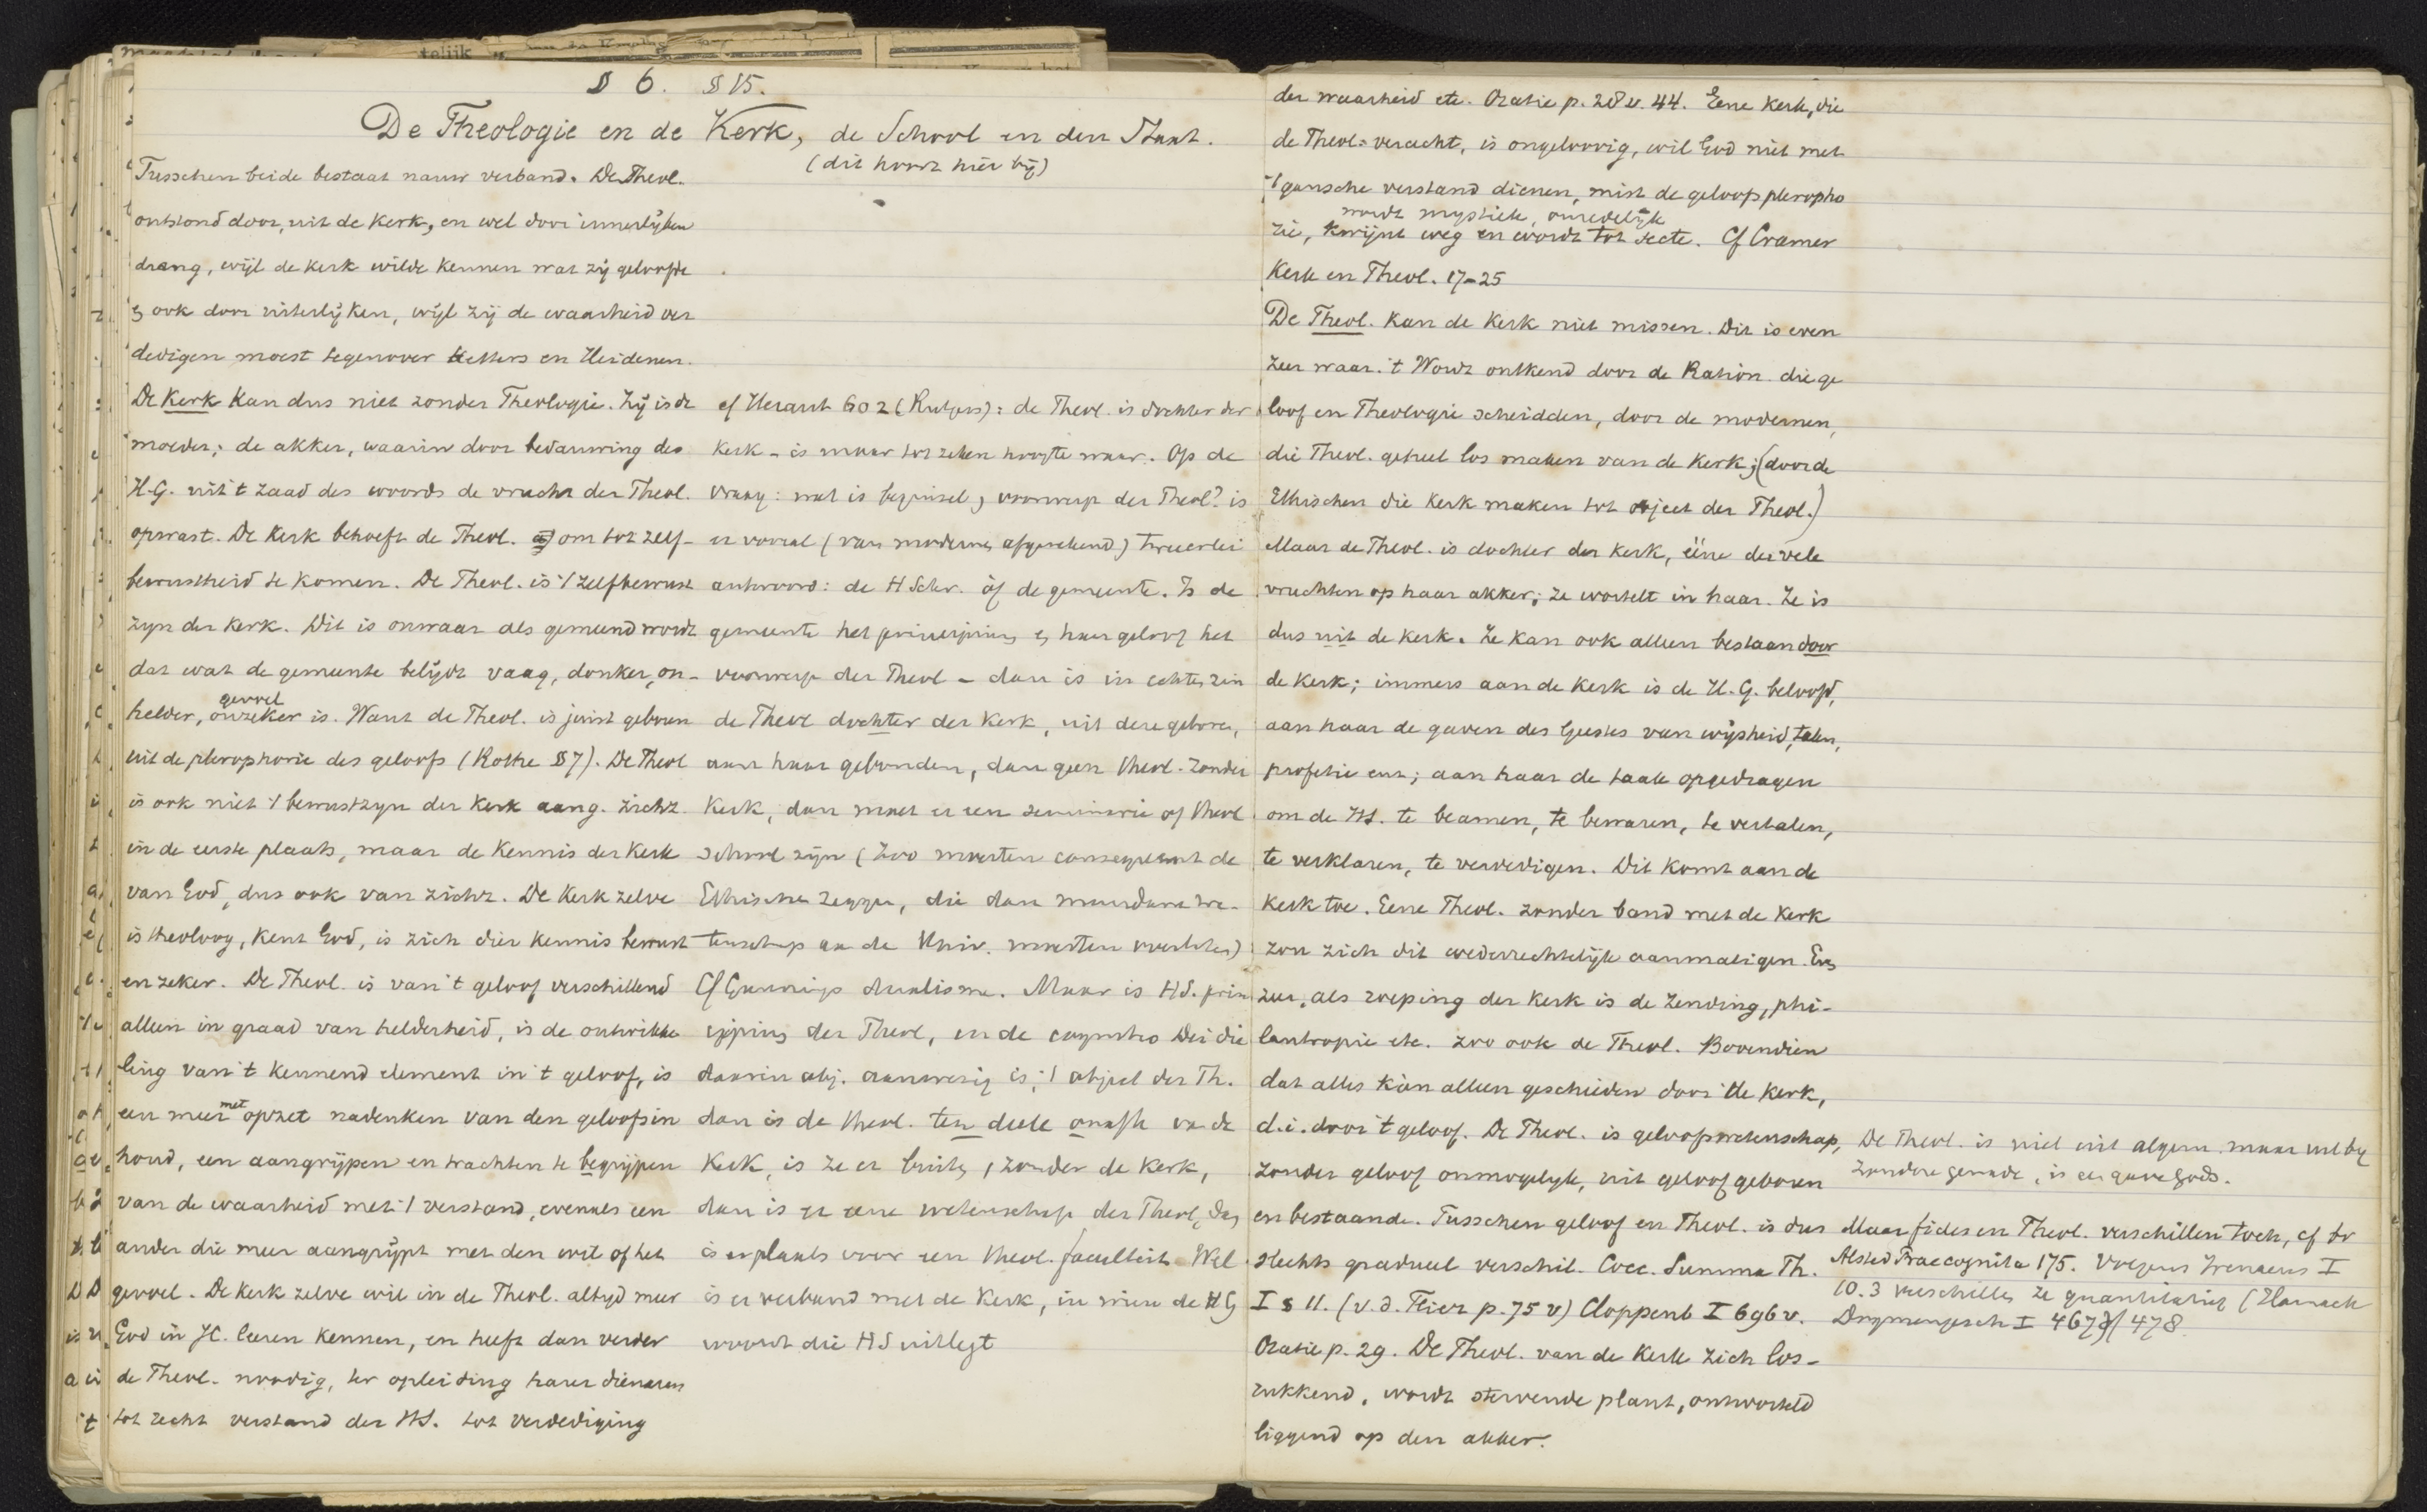 § 6. § 15.
De Theologie en de Kerk, de School en den Staat.
(dit hoort hier bij)
Tusschen beide bestaat nauw verband. De Theol.
ontstond door, uit de Kerk, en wel door innerlijken
drang, wijl de Kerk wilde kennen wat zij geloofde
en ook door uiterlijken, wijl zij de waarheid ver
dedigen moest tegenover Ketters en Heidenen.
De Kerk kan dus niet zonder Theologie. Zij is de
moeder; de akker, waarin door bedauwing des
H.G. uit 't zaad des woords de vrucht der Theol.
opwast. De Kerk behoeft de Theol. a) om tot zelf-
bewustheid te komen. De Theol. is 't zelfbewust
zijn der Kerk. Dit is onwaar als gemeend wordt
dat wat de gemeente belijdt vaag, donker, on-
helder, gevoel onzeker is. Want de Theol. is juist geboren
uit de plerophorie des geloofs (Rothe § 7). De Theol
is ook niet 't bewustzijn der Kerk aang. zichz.
in de eerste plaats, maar de Kennis der Kerk
van God, dus ook van zichz. De Kerk zelve
is theoloog, kent God, is zich dier kennis bewust
en zeker. De Theol. is van 't geloof verschillend
alleen in graad van helderheid, is de ontwikke
ling van 't kennend element in 't geloof, is
een meer met opzet nadenken van den geloofsin
houd, een aangrijpen en trachten te begrijpen
van de waarheid met 't verstand, evenals een
ander die meer aangrijpt met den wil of het
gevoel. De Kerk zelve wil in de Theol. altijd meer
God in JC. leeren kennen, en heeft dan verder
de Theol. noodig, ter opleiding harer dienaren
tot recht verstand der HS. tot verdediging
cf Heraut 602 (Rutgers): de Theol. is dochter der
Kerk - is maar tot zekere hoogte waar. Op de
vraag: wat is beginsel, voorwerp der Theol? is
er vooral (van modernen afgerekend) tweeerlei
antwoord: de H Schr. òf de gemeente. Is de
gemeente het principium en haar geloof het
voorwerp der Theol - dan is in echten zin
de Theol dochter der Kerk, uit deze geboren,
aan haar gebonden, dan geen theol. zonder
Kerk, dan moet er een seminarie of theol
school zijn (zoo moesten consequent de
Ethischen zeggen, die dan
tenschap aan de Univ. moesten
Cf Gunnings dualisme. Maar is HS. prin
cipium der Theol, en de cognitio Dei die
daarin obj. aanwezig is, 't object der Th.
dan is de theol. ten deele onafh van de
Kerk, is ze er buiten, zonder de Kerk,
dan is er eene wetenschap der Theol, dan
is er plaats voor een theol. faculteit. Wel
is er verband met de Kerk, in wien de HG
woont die HS uitlegt
der waarheid etc. Oratie p. 28 v. 44. Eene Kerk, die
de Theol. veracht, is ongeloovig, wil God niet met
't gansche verstand dienen, mist de geloofspleropho
wordt mystiek, onredelijk
rie, kwijnt weg en wordt tot secte. Cf Cramer
Kerk en Theol. 17-25
De Theol. kan de Kerk niet missen. Dit is even
zeer waar. 't Wordt ontkend door de Ration. die ge
loof en Theologie scheidden, door de modernen,
die Theol. geheel los maken van de Kerk; (door de
Ethischen die Kerk maken tot object der Theol.)
Maar de Theol. is dochter der Kerk, ééne der vele
vruchten op haar akker; ze wortelt in haar. Ze is
dus uit de Kerk. Ze kan ook alleen bestaan door
de Kerk; immers aan de Kerk is de H. G. beloofd,
aan haar de gaven des Geestes van wijsheid, talen,
profetie enz; aan haar de taak opgedragen
om de HS. te beamen, te bewaren, te vertalen,
te verklaren, te verdedigen. Dit komt aan de
Kerk toe. Eene Theol. zonder band met de Kerk
zou zich dit wederrechtelijk aanmatigen. Even
zeer, als roeping der Kerk is de zending, phi-
lantropie etc. zoo ook de Theol. Bovendien
dat alles kàn alleen geschieden door de Kerk,
d.i. door 't geloof. De Theol. is geloofswetenschap,
zonder geloof onmogelijk, uit geloof geboren
en bestaande. Tusschen geloof en Theol. is dus
slechts gradueel verschil. Cocc. Summa Th.
I § 11. (v. d. Flier p. 75 v) Cloppenb I 696 v.
Oratie p. 29. De Theol. van de Kerk zich los-
rukkend, wordt stervende plant, ontworteld
liggend op den akker.
De Theol. is niet uit algem. maar uit bij
zondere genade, is een gave Gods.
Maar fides en Theol. verschillen toch, cf bv
Alsted Praecognita 175. Volgens Irenaeus I
10.3 verschillen ze quantitatief (Harnack
Dogmengesch I 467 478